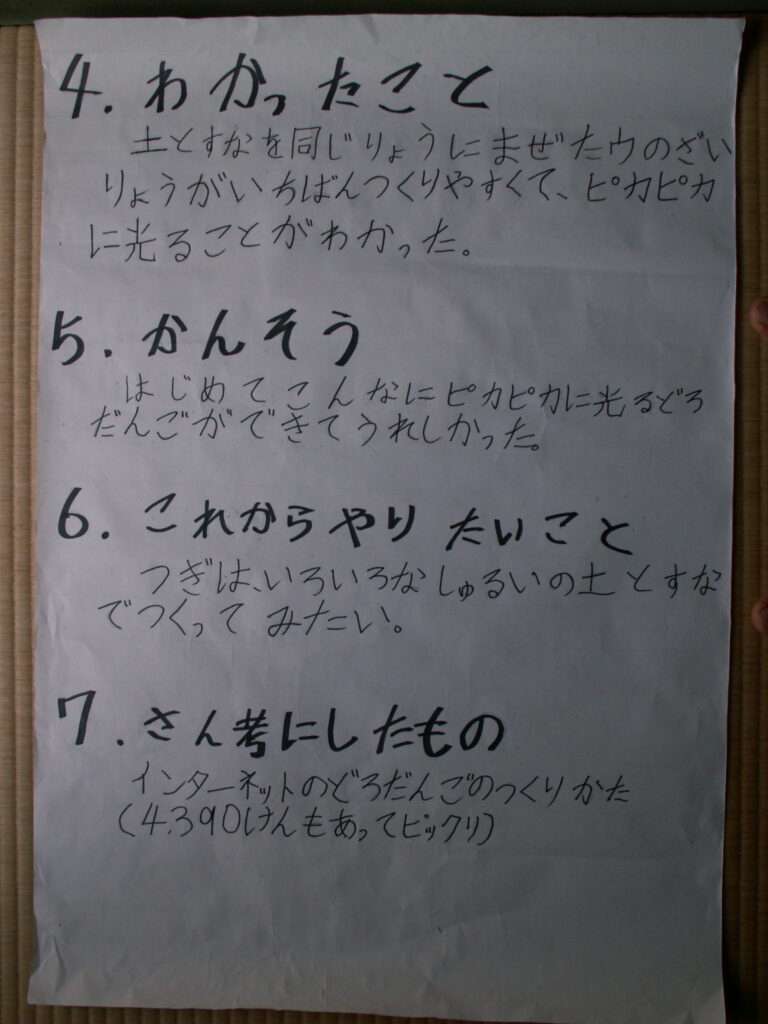 4. わかったこと
土とすなを同じりょうにまぜたウのざい
りょうがいちばんつくりやすくて、ピカピカ
に光ることがわかった。
5. かんそう
はじめてこんなにピカピカに光るどろ
だんごができてうれしかった。
6. これからやりたいこと
つぎは、いろいろなしゅるいの土とすな
でつくってみたい。
7. さん考にしたもの
インターネットのどろだんごのつくりかた
(4.390けんもあってビックリ)